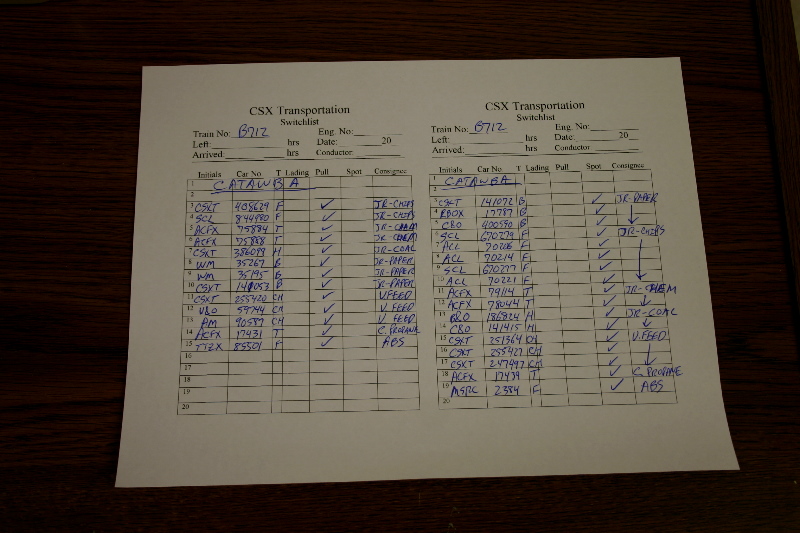 CSX Transportation
Switchlist
Train No: B712 Eng. No:
Left: hrs Date: 20
Arrived: hrs Conductor:
Initials Car No T Lading Pull Spot Consignee
1 CATAWBA
2
3 CSXT 408629 F ✓ JR-CHIPS
4 SCL 844980 F ✓ JR-CHIPS
5 ACFX 75884 T ✓ JR-CHEM
6 ACFX 75788 T ✓ JR CHEM
7 CSXT 386099 H ✓ JR-COAL
8 WM 35267 B ✓ JR-PAPER
9 WM 35195 B ✓ JR-PAPER
10 CSXT 141053 B ✓ JR-PAPER
11 CSXT 255420 CH ✓ V.FEED
12 59744 CH ✓ V FEED
13 PM 90587 CH ✓ V FEED
14 ACFX 17431 T ✓ C. PROPANE
15 TTZX 85501 F ✓ ABS
16
17
18
19
20
CSX Transportation
Switchlist
Train No: B712 Eng. No:
Left: hrs Date: 20
Arrived: hrs Conductor
Initials Car No T Lading Pull Spot Consignee
1 CATAWBA
2
3 CSXT 141072 B ✓ JR-PAPER
4 RBOX 17787 B ✓
5 CRO 400590 B ✓
6 SCL 670279 F ✓ JR-CHIPS
7 ACL 70206 F ✓
8 ACL 70214 F ✓
9 SCL 670277 F ✓
10 ACL 70221 F ✓
11 ACFX 79114 T ✓ JR-CHEM
12 ACFX 78044 T ✓
13 186824 H ✓ JR-COAL
14 CRO 141415 H ✓
15 CSXT 251364 CH ✓ V.FEED
16 CSXT 255427 CH ✓
17 CSXT 247497 CH ✓
18 ACFX 17439 T ✓ C. PROPANE
19 2384 F ✓ ABS
20